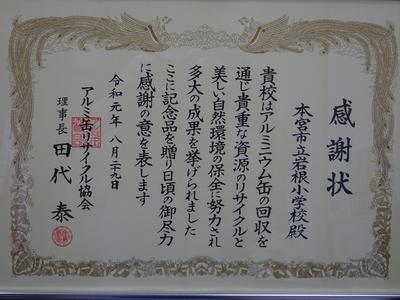 感謝状
本宮市立岩根小学校殿
貴校はアルミニウム缶の回収を
通じ貴重な資源のリサイクルと
美しい自然環境の保全に努力され
多大の成果を挙げられました
ここに記念品を贈り日頃の御尽力
に感謝の意を表します
令和元年八月二九日
アルミ缶リサイクル協会
理事長 田代泰